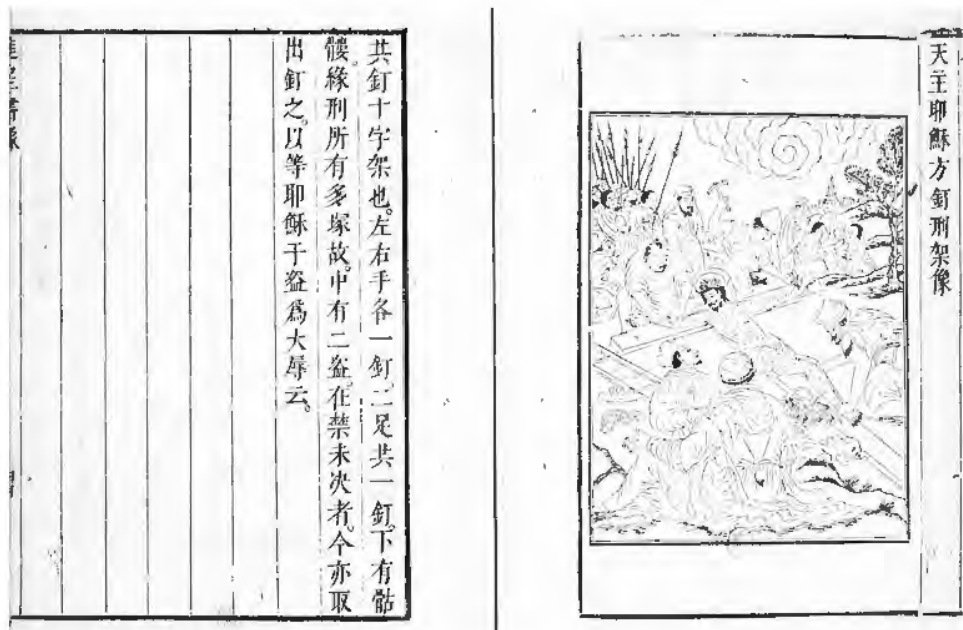 天主耶穌方釘刑架像
共釘十字架也。左右手各一釘。二足共一釘。下有骷
髏。緣刑所有多塚故。中有二盜。在禁未決者。今亦取
出釘之。以等耶穌于盜爲大辱云。